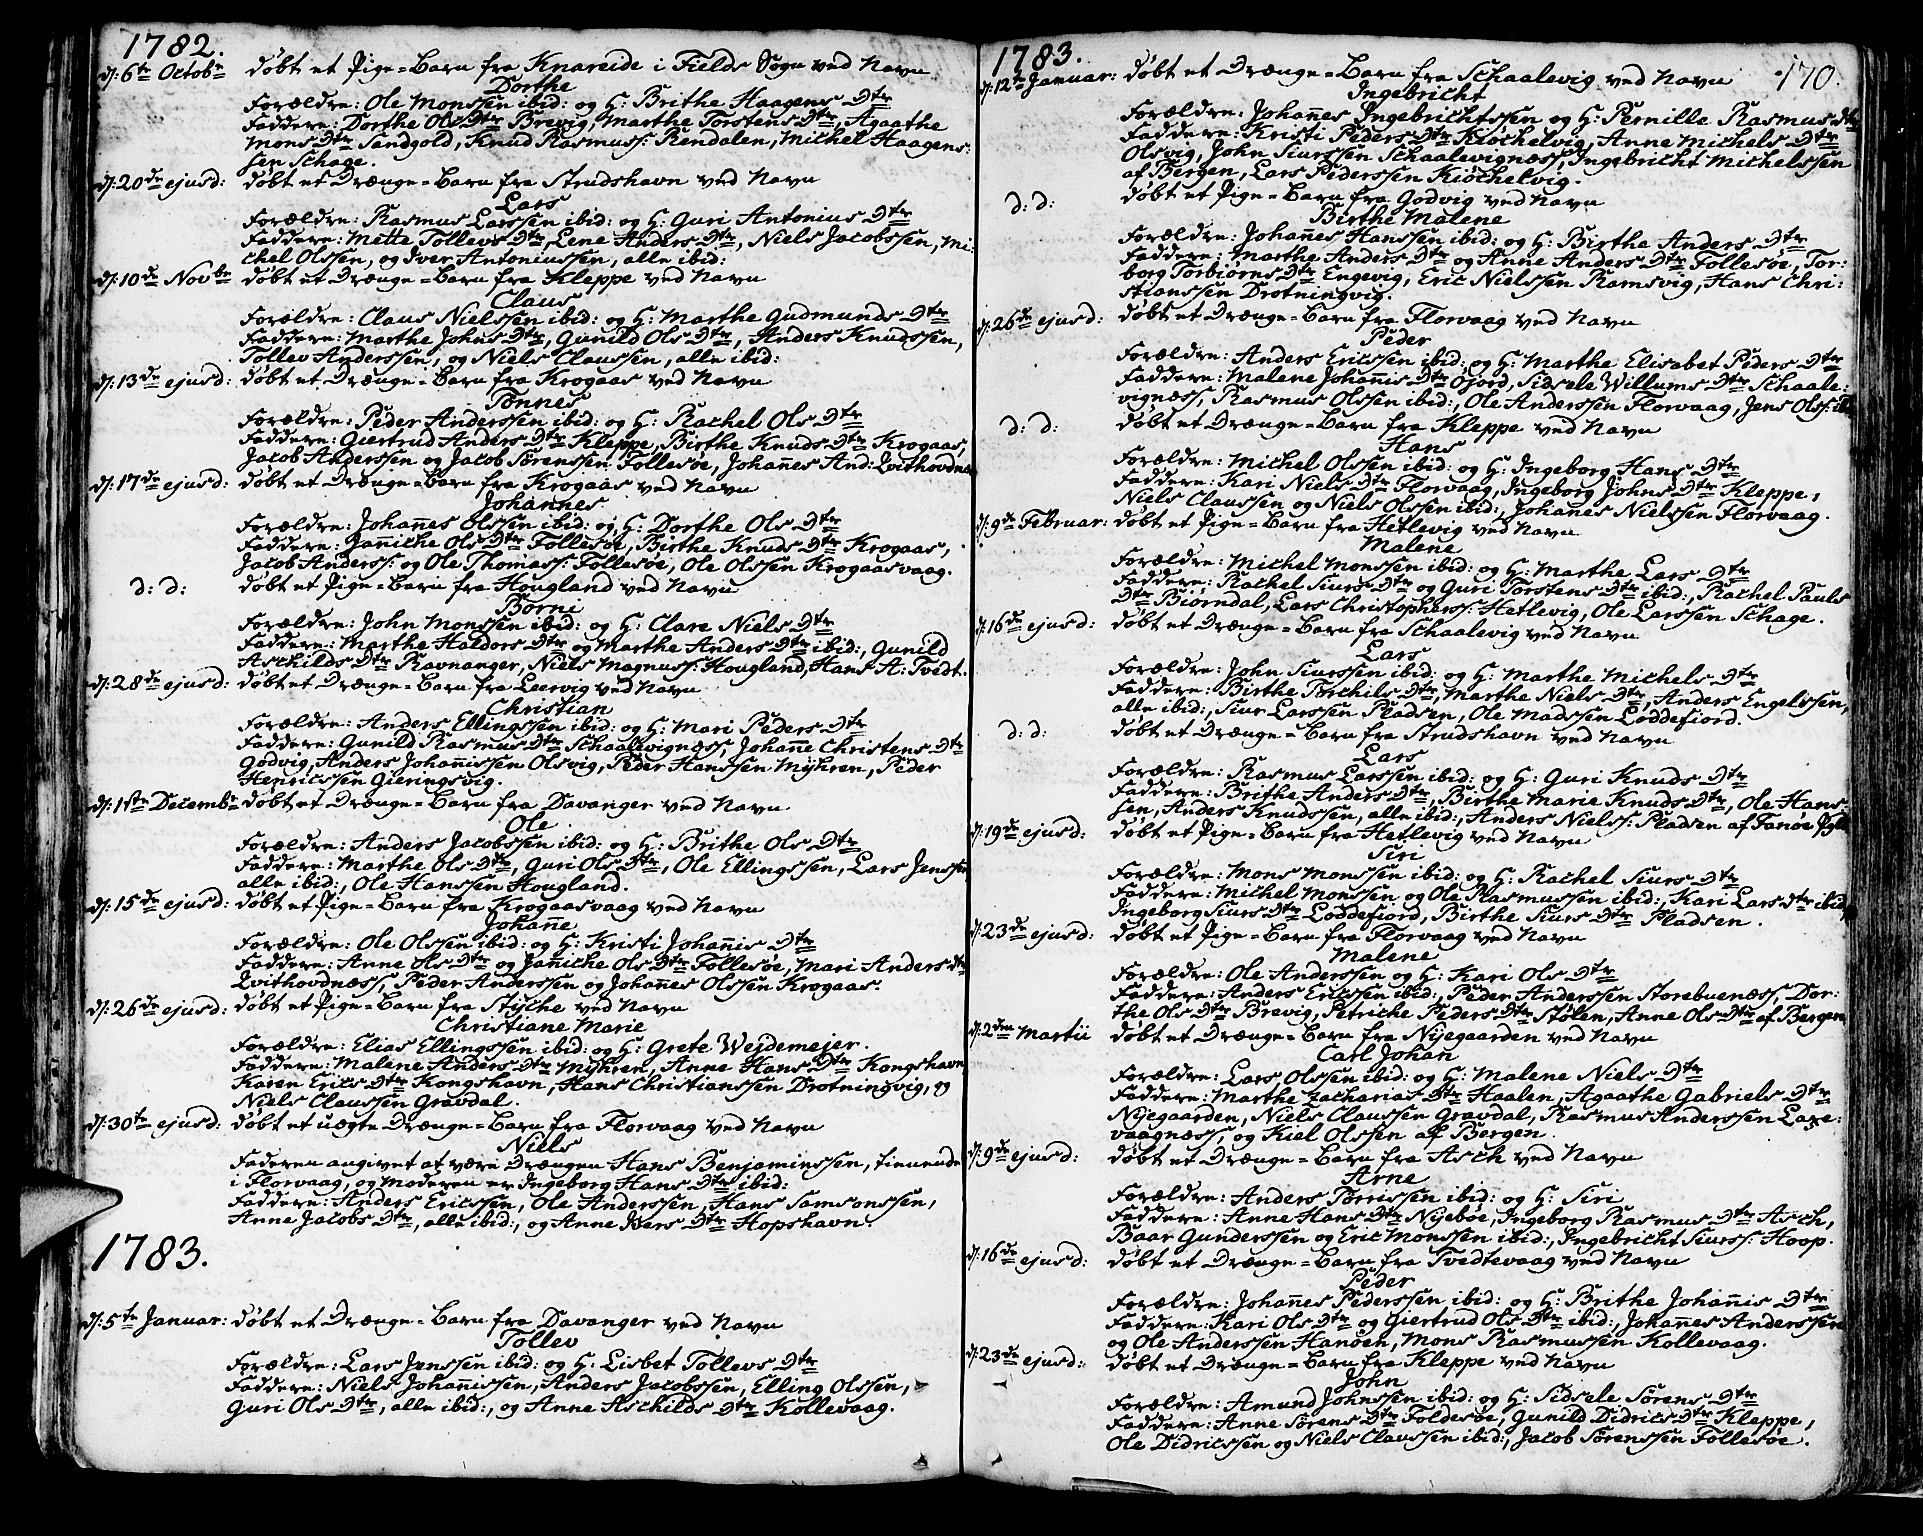 1782.
d: 6te Octobr døbt et Pige=Barn fra Knareide i Fields Sogn ved Navn
Dorthe
Forældre: Ole Monssen ibid: og H: Brithe Haagens Dtr
Faddere: Dorthe Ols Dtr Brevig, Marthe Torstens Dtr, Agaathe
Mons Dtr Sandgold, Knud Rasmuss: Rendalen, Michel Haagens:
sen Schage.
d: 20de ejusd: døbt et Drænge=Barn fra Strudshavn ved Navn
Lars
Forældre: Rasmus Larssen ibid: og H: Guri Antonius Dtr
Faddere: Mette Tollevs Dtr, Lene Anders Dtr, Niels Jacobssen, Mi:
chel Olssen, og Iver Antoniussen, alle ibid:
d: 10de Novbr døbt et Drænge=Barn fra Kleppe ved Navn
Claus
Forældre: Claus Nielssen ibid: og H: Marthe Gudmunds Dtr
Faddere: Marthe Johns Dtr, Gunild Ols Dtr, Anders Knudssen,
Tollev Anderssen, og Niels Claussen, alle ibid:
d: 13de ejusd: døbt et Drænge=Barn fra Krogaas ved Navn
Tønnes
Forældre: Peder Anderssen ibid: og H: Rachel Ols Dtr
Faddere: Giertrud Anders Dtr Kleppe, Birthe Knuds Dtr Krogaas,
Jacob Anderssen og Jacob Sørenssen Follesøe, Johañes And: Qvithovdnes
d: 17de ejusd: døbt et Drænge=Barn fra Krogaas ved Navn
Johannes
Forældre: Johañes Olssen ibid: og H: Dorthe Ols Dtr
Faddere: Jañiche Ols Dtr Follesøe, Birthe Knuds Dtr Krogaas,
Jacob Anderss: og Ole Thomass: Follesøe, Ole Olssen Krogaasvaag.
d: d: døbt et Pige=Barn fra Hougland ved Navn
Børni
Forældre: John Monssen ibid: og H: Clare Niels Dtr
Faddere: Marthe Haldors Dtr og Marthe Anders Dtr ibid:, Gunild
Aschilds Dtr Ravnanger, Niels Magnuss: Hougland, Hans A: Tvedt.
d: 28de ejusd: døbt et Drænge=Barn fra Leervig ved Navn
Christian
Forældre: Anders Ellingssen ibid: og H: Mari Peders Dtr
Faddere: Gunild Rasmus Dtr Schaalevignæss, Johañe Christens Dtr
Godvig, Anders Johañissen Olsvig, Peder Hanssen Mÿhren, Peder
Henricssen Gieringsvig.
d: 1ste Decembr døbt et Drænge=Barn fra Davanger ved Navn
Ole
Forældre: Anders Jacobssen ibid: og H: Brithe Ols Dtr
Faddere: Marthe Ols Dtr, Guri Ols Dtr, Ole Ellingssen, Lars Jenssen
alle ibid:, Ole Hanssen Hougland.
d: 15de ejusd: døbt et Pige=Barn fra Krogaasvaag ved Navn
Johañe
Forældre: Ole Olssen ibid: og H: Kristi Johañis Dtr
Faddere: Anne Ols Dtr og Jañiche Ols Dtr Follesøe, Mari Anders Dtr
Qvithovdnæss, Peder Anderssen og Johañes Olssen Krogaas.
d: 26de ejusd: døbt et Pige=Barn fra Stÿche ved Navn
Christiane Marie
Forældre: Elias Ellingssen ibid: og H: Grete Weÿdemejer.
Faddere: Malene Anders Dtr Mÿhren, Anne Hans Dtr Kongshavn
Karen Erics Dtr Kongshavn, Hans Christianssen Drotningvig, og
Niels Claussen Gravdal.
d: 30te ejusd: døbt et uægte Drænge=Barn fra Florvaag ved Navn
Niels
Faderen angivet at være Drængen Hans Benjaminssen, tienende
i Florvaag, og Moderen er Ingeborg Hans Dtr ibid:
Faddere: Anders Ericssen, Ole Anderssen, Hans Samsonssen,
Anne Jacobs Dtr, alle ibid:, og Anne Wers Dtr Hopshavn.
1783.
d: 5te Januar: døbt et Drænge=Barn fra Davanger ved Navn
Tollev
Forældre: Lars Jenssen ibid: og H: Lisbet Tollevs Dtr
Faddere: Niels Johañissen, Anders Jacobssen, Elling Olssen,
Guri Ols Dtr, alle ibid:, og Anne Aschilds Dtr Kollevaag.
1783. 170.
d: 12te Januar: døbt et Drænge=Barn fra Schaalevig ved Navn
Ingebricht
Forældre: Johañes Ingebrichtssen og H: Pernille Rasmus Dtr
Faddere: Kristi Peders Dtr Kiøchelvig, Anne Michels Dtr
Olsvig, John Siurssen Schaalevignæss, Ingebricht Michelssen
af Bergen, Lars Pederssen Kiøchelvig.
d: d: døbt et Pige=Barn fra Godvig ved Navn
Birthe Malene
Forældre: Johañes Hanssen ibid: og H: Birthe Anders Dtr
Faddere: Marthe Anders Dtr og Anne Anders Dtr Follesøe, Tor:
borg Torbiørns Dtr Engevig, Eric Nielssen Ramsvig, Hans Chri:
stianssen Drotningvig.
d: 26de ejusd: døbt et Drænge=Barn fra Florvaag ved Navn
Peder
Forældre: Anders Ericssen ibid: og H: Marthe Elisabet Peders Dtr
Faddere: Malene Johañis Dtr Ofjord, Sidsele Willums Dtr Schaale:
vignæss, Rasmus Olssen ibid:, Ole Anderssen Florvaag, Jens Olss: ibid
d: d: døbt et Drænge=Barn fra Kleppe ved Navn
Hans
Forældre: Michel Olssen ibid: og H: Ingeborg Hans Dtr
Faddere: Kari Niels Dtr Florvaag, Ingeborg Johns Dtr Kleppe,
Niels Claussen og Niels Olssen ibid:, Johañes Nielssen Florvaag.
d: 9de Februar: døbt et Pige=Barn fra Hetlevig ved Navn
Malene
Forældre: Michel Monssen ibid: og H: Marthe Lars Dtr
Faddere: Rachel Siurs Dtr og Guri Torstens Dtr ibid:, Rachel Pauls
Dtr Biørndal, Lars Christopherss: Hetlevig, Ole Larssen Schage.
d: 16de ejusd: døbt et Drænge=Barn fra Schaalevig ved Navn
Lars
Forældre: John Siurssen ibid: og H: Marthe Michels Dtr
Faddere: Birthe Torchils Dtr, Marthe Niels Dtr, Anders Engelssen,
alle ibid:, Siur Larssen Pladsen, Ole Madssen Loddefiord.
d: d: døbt et Drænge=Barn fra Strudshavn ved Navn
Lars
Forældre: Rasmus Larssen ibid: og H: Guri Knuds Dtr
Faddere: Brithe Anders Dtr, Birthe Marie Knuds Dtr, Ole Hans:
sen, Anders Knudssen, alle ibid:, Anders Nielss: Pladsen af Fanøe
d: 19de ejusd: døbt et Pige=Barn fra Hetlevig ved Navn
Siri
Forældre: Mons Monssen ibid: og H: Rachel Siurs Dtr
Faddere: Michel Monssen og Ole Rasmussen ibid:, Kari Lars Dtr ibid
Ingeborg Siurs Dtr Loddefiord, Birthe Siurs Dtr Pladsen.
d: 23de ejusd: døbt et Pige=Barn fra Florvaag ved Navn
Malene
Forældre: Ole Anderssen og H: Kari Ols Dtr
Faddere: Anders Ericssen ibid:, Peder Anderssen Storebuenæss, Dor:
the Ols Dtr Brevig, Petriche Peders Dtr Stølen, Anne Ols Dtr af Bergen
d: 2den Martii døbt et Drænge=Barn fra Nÿegaarden ved Navn
Carl Johan
Forældre: Lars Olssen ibid: og H: Malene Niels Dtr
Faddere: Marthe Zacharias Dtr Haalen, Agaathe Gabriels Dtr
Nÿegaarden, Niels Claussen Gravdal, Rasmus Anderssen Laxe:
vaagnæss, og Kiel Olssen af Bergen.
d: 9de ejusd: døbt et Drænge=Barn fra Asch ved Navn
Arne
Forældre: Anders Torrissen ibid: og H: Siri
Faddere: Anne Hans Dtr Nÿebøe, Ingeborg Rasmus Dtr Asch,
Baar Gunderssen og Eric Monssen ibid:, Ingebricht Siurss: Hoop.
d: 16de ejusd: døbt et Drænge=Barn fra Tvedtevaag ved Navn
Peder
Forældre: Johañes Pederssen ibid: og H: Brithe Johañis Dtr
Faddere: Kari Ols Dtr og Giertrud Ols Dtr ibid:, Johañes Anderssen
og Ole Anderssen Hanøen, Mons Rasmussen Kollevaag.
d: 23de ejusd: døbt et Drænge=Barn fra Kleppe ved Navn
John
Forældre: Amund Johnssen ibid: og H: Sidsele Sørens Dtr
Faddere: Anne Sørens Dtr Foldesøe, Gunild Didrics Dtr Kleppe,
Ole Didricssen og Niels Claussen ibid:, Jacob Sørenssen Follesøe.